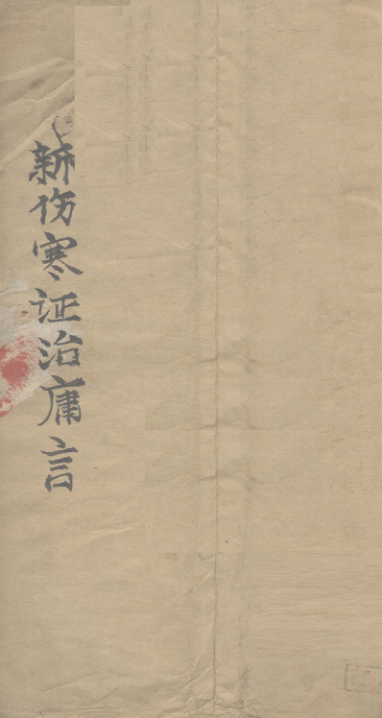 新伤寒证治庸言